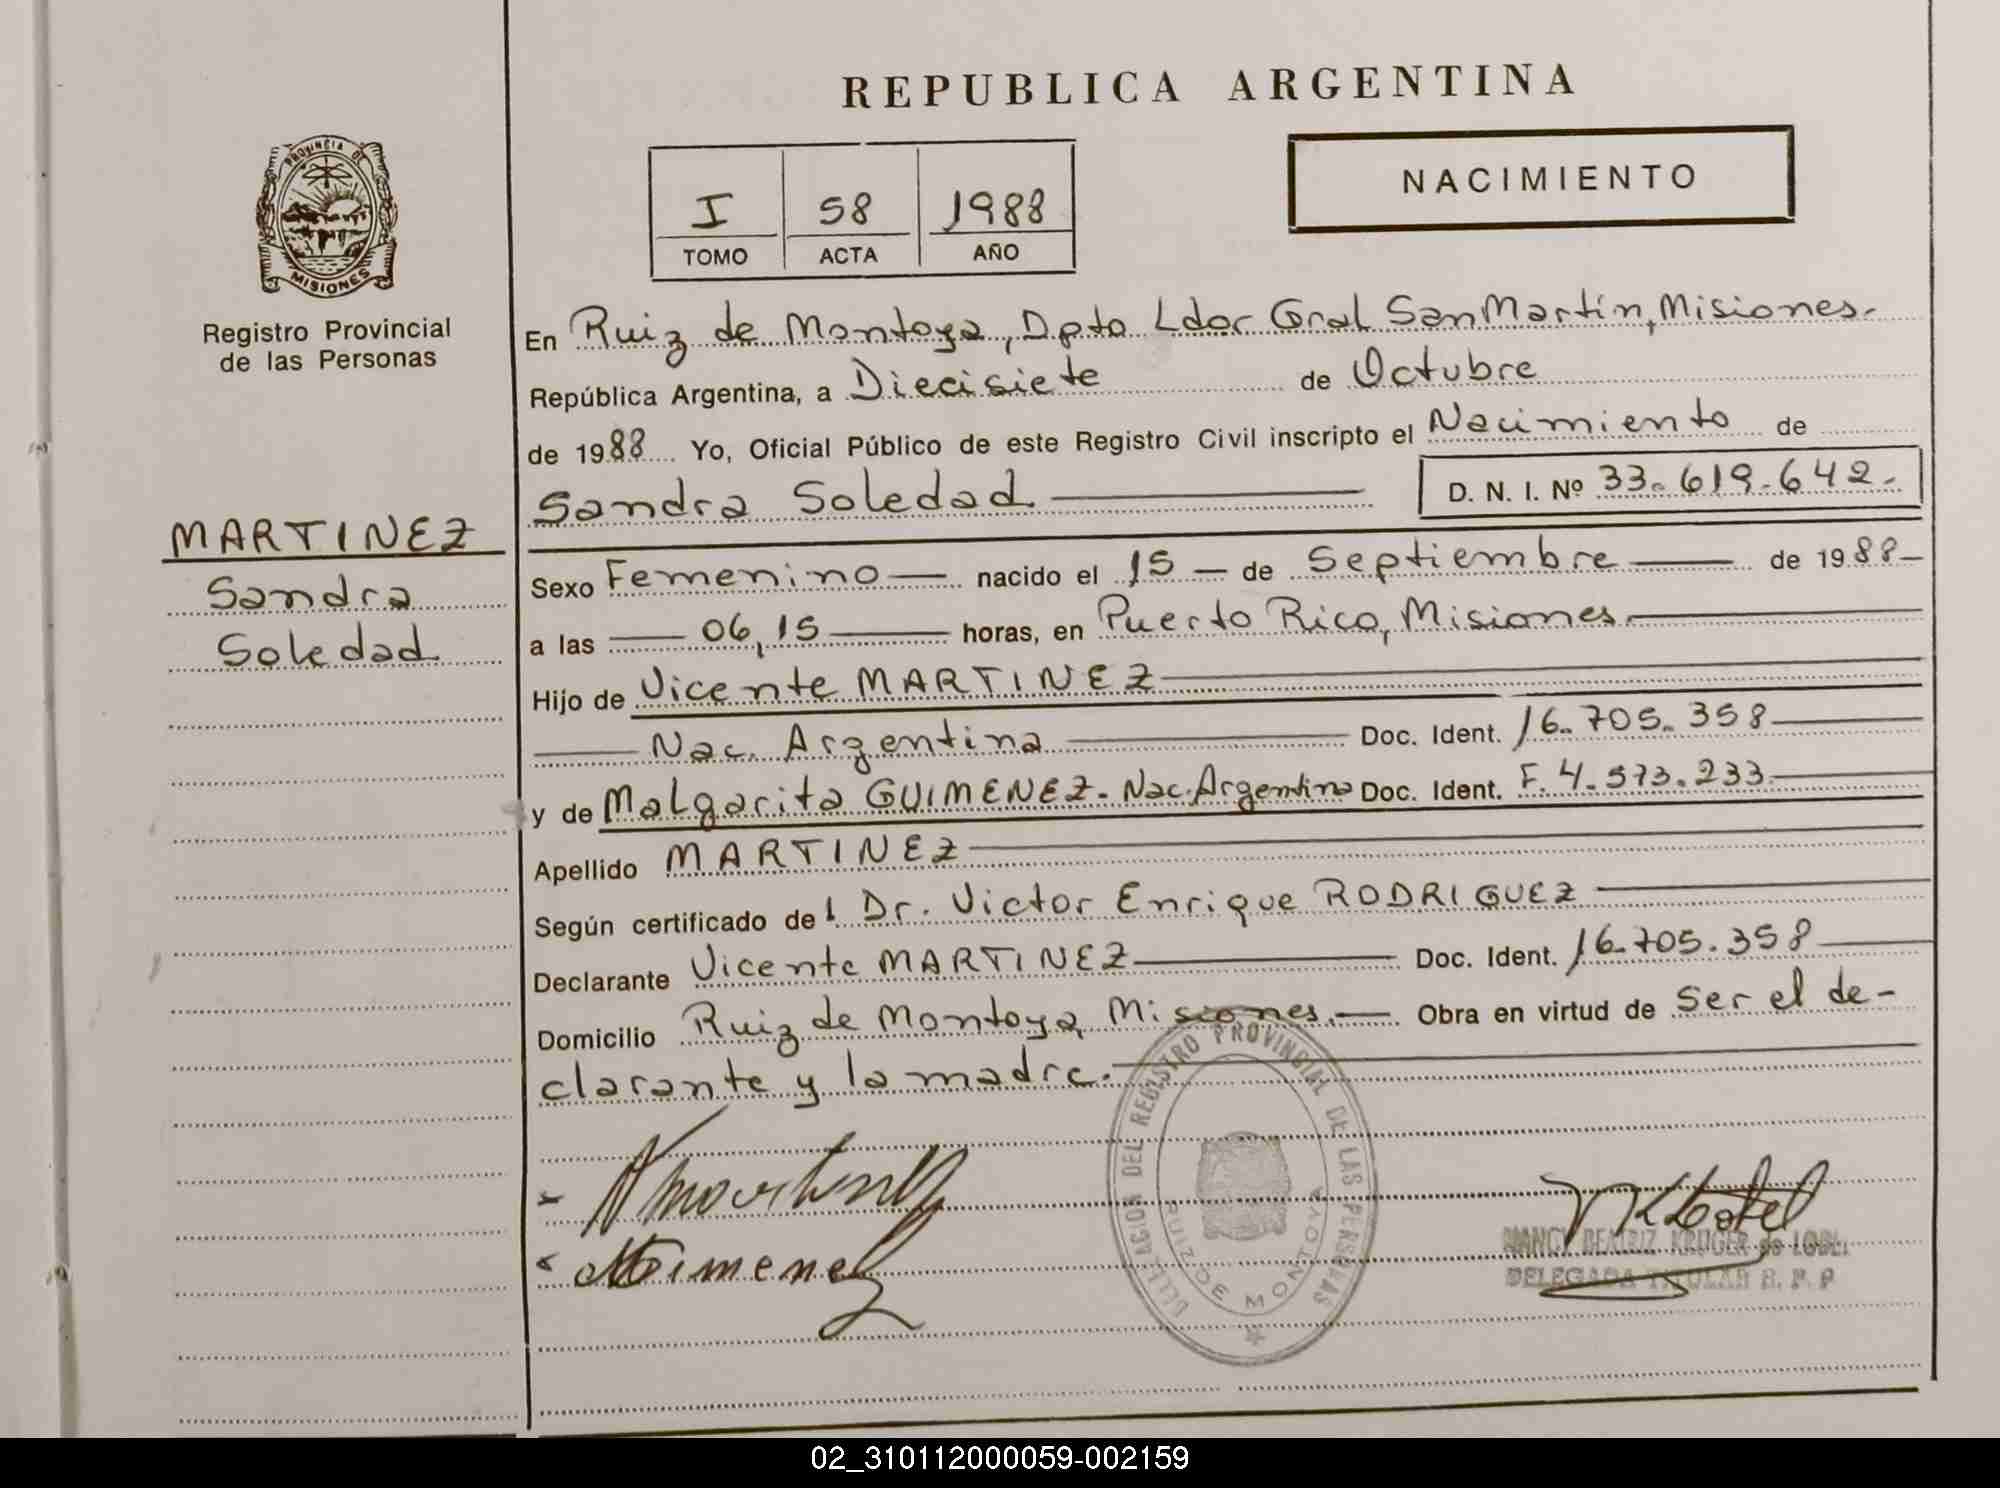 REPUBLICA ARGENTINA
PROVINCIA DE
MISIONES
Registro Provincial
de las Personas
I 58 1988
TOMO ACTA AÑO
NACIMIENTO
En Ruiz de Montoya, Dpto Ldor Gral San Martín, Misiones.
República Argentina, a Diecisiete de Octubre
de 1988 Yo, Oficial Público de este Registro Civil inscripto el Nacimiento de
Sandra Soledad D. N. I. Nº 33.619.642.
MARTINEZ
Sandra
Soledad
Sexo Femenino nacido el 15 de Septiembre de 1988
a las 06,15 horas, en Puerto Rico, Misiones.
Hijo de Vicente MARTINEZ
Nac. Argentina Doc. Ident. 16.705.358
y de Malgarita GUIMENEZ. Nac. Argentina Doc. Ident. F. 4.573.233
Apellido MARTINEZ
Según certificado del Dr. Victor Enrique RODRIGUEZ
Declarante Vicente MARTINEZ Doc. Ident. 16.705.358
Domicilio Ruiz de Montoya, Misiones. Obra en virtud de ser el de-
clarante y la madre.
DELEGACION DEL REGISTRO PROVINCIAL DE LAS PERSONAS
RUIZ DE MONTOYA
NANCY BEATRIZ KRUGER de LOBEL
DELEGADA TITULAR R. P. P
02_310112000059-002159